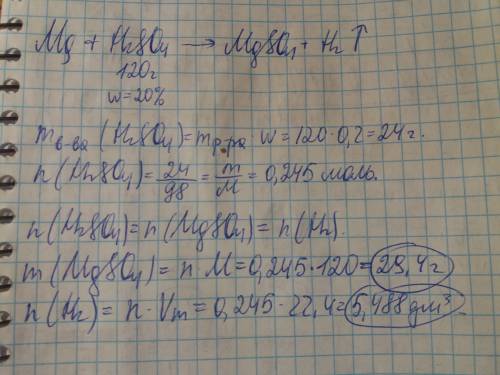 Mg + H₂SO₄ → MgSO₄ + H₂ ↑
120г
w=20%
m в-ва (H₂SO₄) = m р-ра · w = 120 · 0,2 = 24 г.
n (H₂SO₄) = 24/98 = m/M = 0,245 моль.
n (H₂SO₄) = n (MgSO₄) = n (H₂).
m (MgSO₄) = n · M = 0,245 · 120 = 29,4 г
n (H₂) = n · Vm = 0,245 · 22,4 = 5,488 дм³.